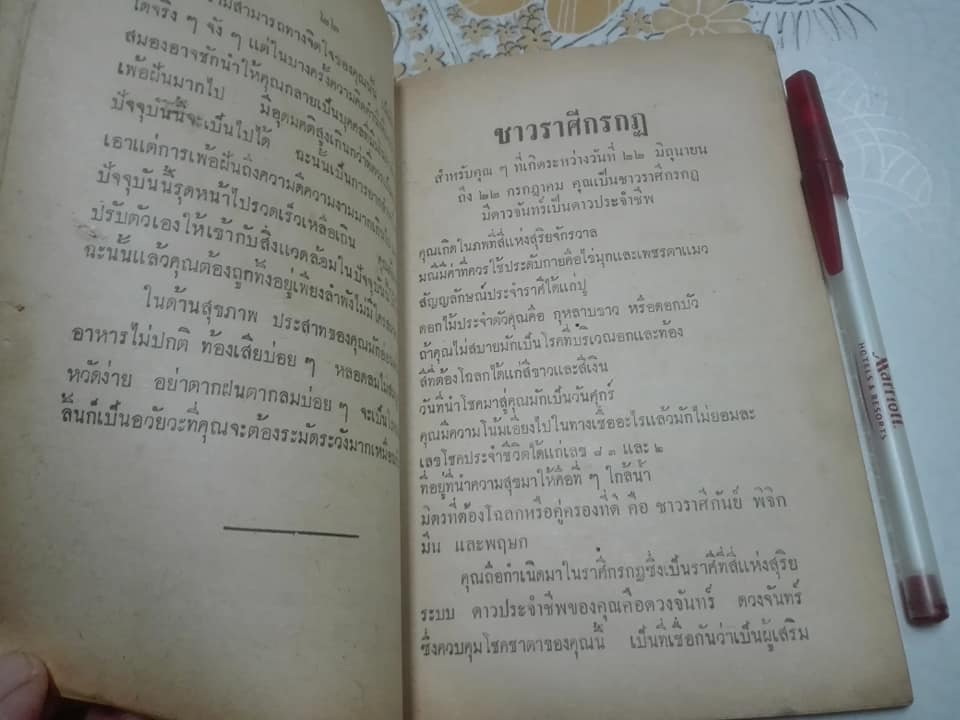 ๒๒
ความสามารถทางจิตใจของคุณนั้น
ได้จริง ๆ จัง ๆ แต่ในบางครั้งความคิดคำนึง
สมองอาจชักนำให้คุณกลายเป็นบุคคลที่
เพ้อฝันมากไป มีอุดมคติสูงเกินกว่า
ปัจจุบันนี้จะเป็นไปได้ ฉะนั้นเป็นการยาก
เอาแต่การเพ้อฝันถึงความดีความงามมาก
ปัจจุบันนี้รุดหน้าไปรวดเร็วเหลือเกิน
ปรับตัวเองให้เข้ากับสิ่งแวดล้อมในปัจจุบัน
ฉะนั้นแล้วคุณต้องถูกทิ้งอยู่เพียงลำพังไม่มีใคร
ในด้านสุขภาพ ประสาทของคุณมักอ่อน
อาหารไม่ปกติ ท้องเสียบ่อย ๆ หลอดลมไม่
หวัดง่าย อย่าตากฝนตากลมบ่อย ๆ จะเป็น
ลิ้นก็เป็นอวัยวะที่คุณจะต้องระมัดระวังมากเหมือน
ชาวราศีกรกฎ
สำหรับคุณ ๆ ที่เกิดระหว่างวันที่ ๒๒ มิถุนายน
ถึง ๒๒ กรกฎาคม คุณเป็นชาวราศีกรกฎ
มีดาวจันทร์เป็นดาวประจำชีพ
คุณเกิดในภพที่สี่แห่งสุริยจักรวาล
มณีมีค่าที่ควรใช้ประดับกายคือไข่มุกและเพชรตาแมว
สัญญลักษณ์ประจำราศีได้แก่ปู
ดอกไม้ประจำตัวคุณคือ กุหลาบขาว หรือดอกบัว
ถ้าคุณไม่สบายมักเป็นโรคที่บริเวณอกและท้อง
สีที่ต้องโฉลกได้แก่สีขาวและสีเงิน
วันที่นำโชคมาสู่คุณมักเป็นวันศุกร์
คุณมีความโน้มเอียงไปในทางเชื่ออะไรแล้วมักไม่ยอมละ
เลขโชคประจำชีวิตได้แก่เลข ๘ ๓ และ ๒
ที่อยู่ที่นำความสุขมาให้คือที่ ๆ ใกล้น้ำ
มิตรที่ต้องโฉลกหรือคู่ครองที่ดี คือ ชาวราศีกันย์ พิจิก
มีน และพฤษภ
คุณถือกำเนิดมาในราศีกรกฎซึ่งเป็นราศีที่สี่แห่งสุริย
ระบบ ดาวประจำชีพของคุณคือดวงจันทร์ ดวงจันทร์
ซึ่งควบคุมโชคชาตาของคุณนี้ เป็นที่เชื่อกันว่าเป็นผู้เสริม
Marriott
HOTELS & RESORTS